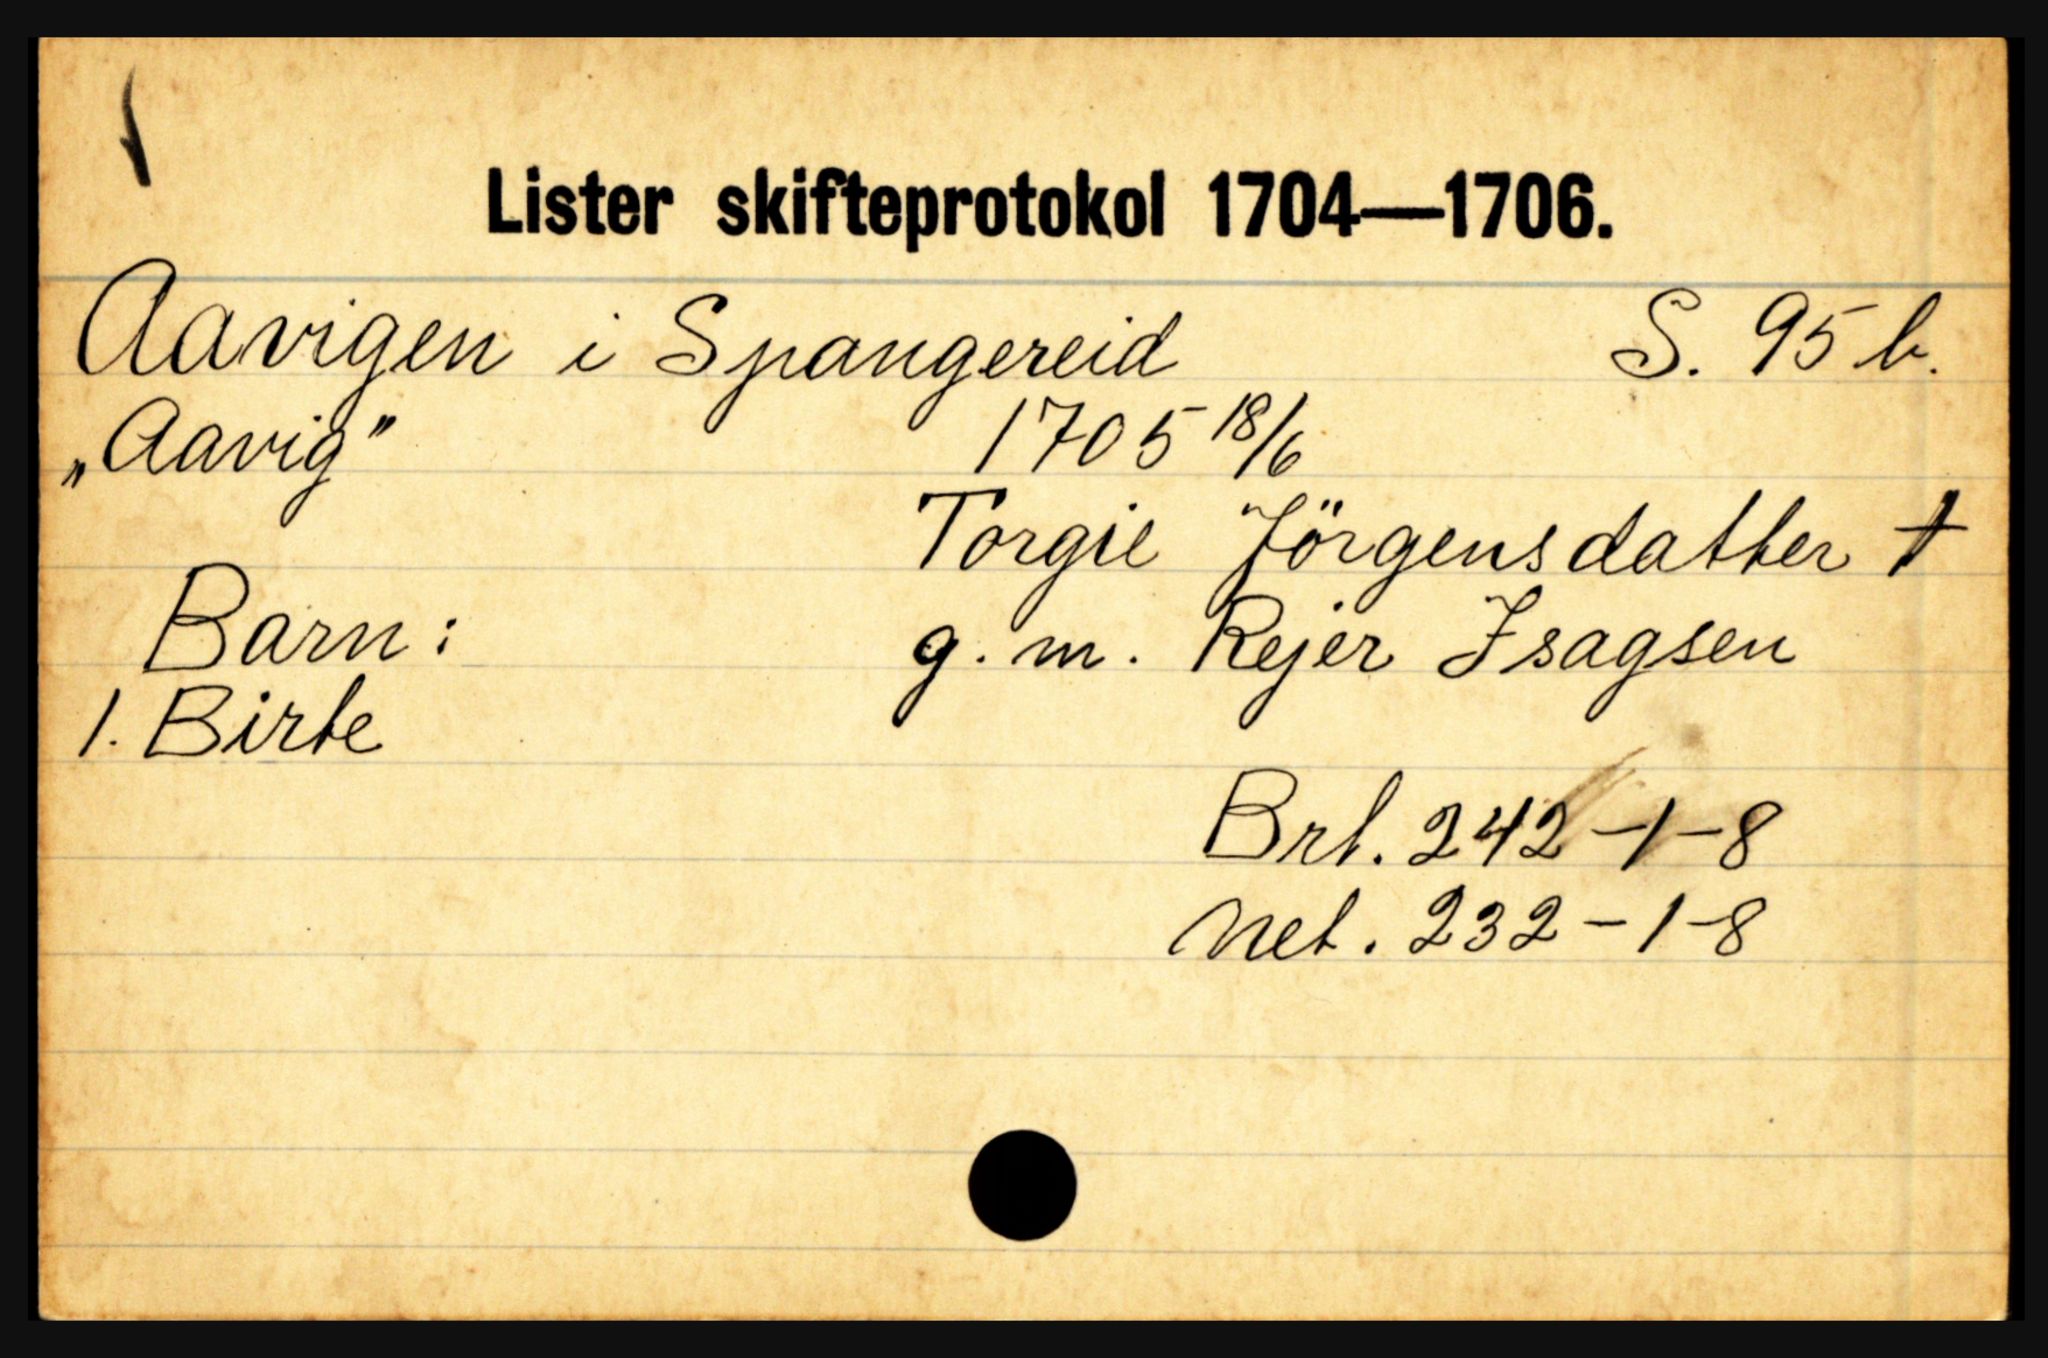 Lister skifteprotokol 1704—1706.
Aavigen i Spangereid S. 95 b.
„Aavig" 1705 18/6
Torgie Jörgensdatter †
Barn: g. m. Rejer Isagsen
1. Birte
Brt. 242-1-8
Net. 232-1-8